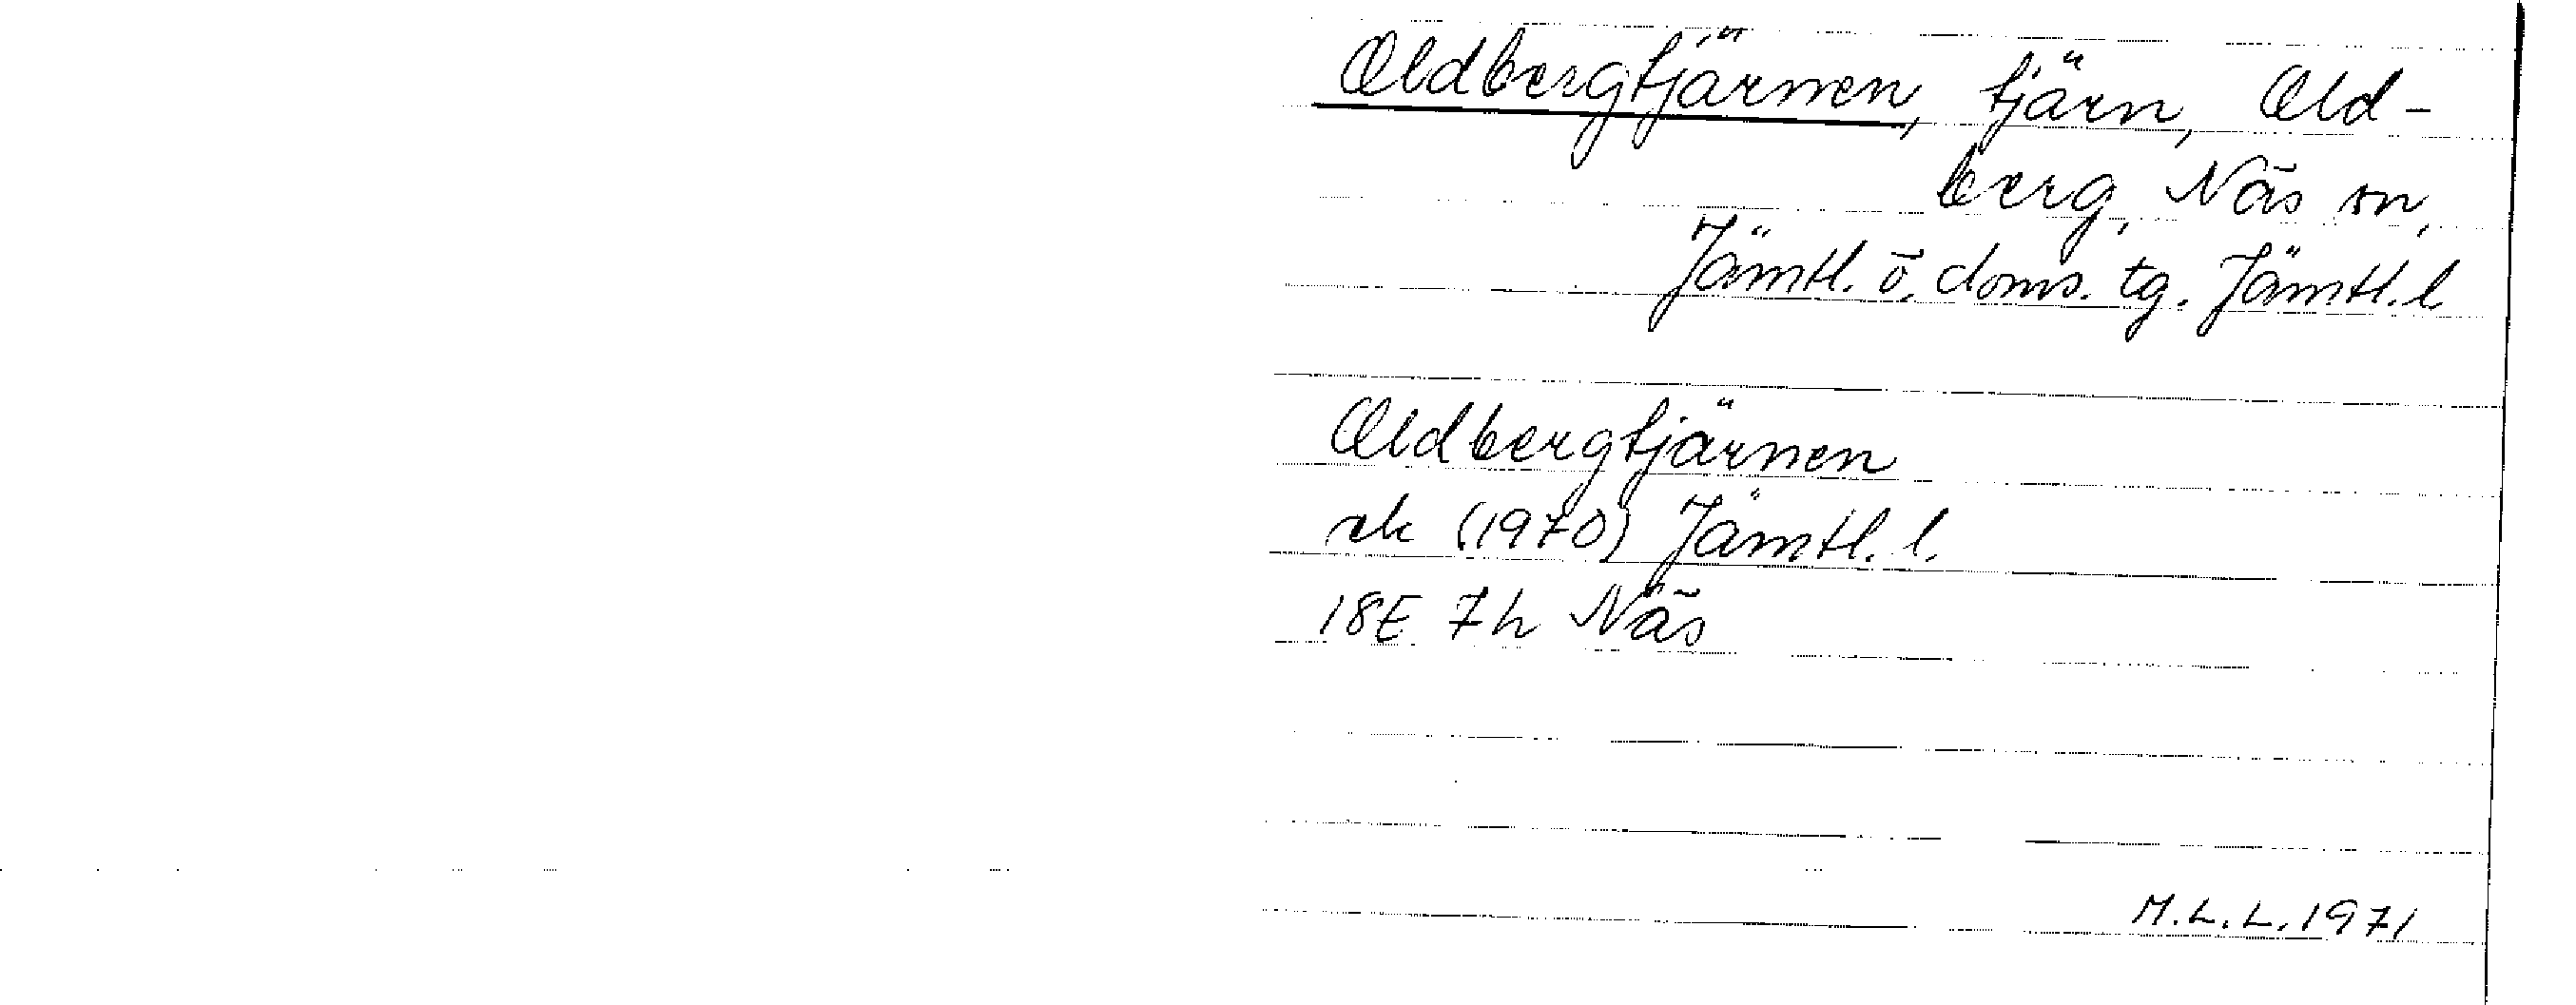 Oldbergtjärnen, tjärn, Old-
berg, Näs sn,
Jämtl. ö. doms. tg. Jämtl. l
Oldbergtjärnen
rk (1970) Jämtl. l.
18E 7h Näs
M.L.L. 1971